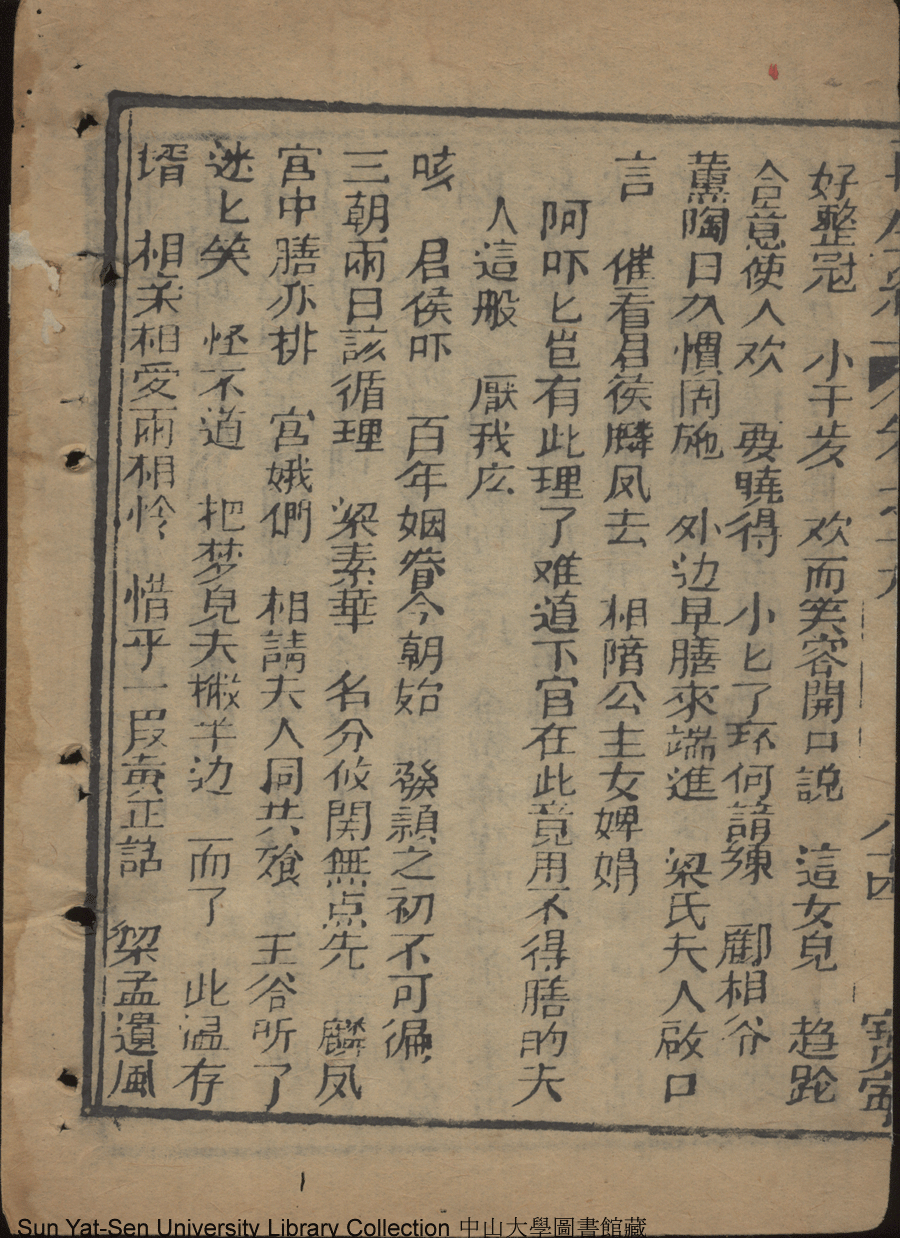 好整冠 小千岁 欢而笑容開口説 這女皃 趋跄
合意使人欢 要曉得 小匕了环何諳練 酈相谷
薰陶日久慣周施 外边早膳來端進 梁氏夫人啟口
言 催看君侯麟凤去 相陪公主女婢娟
阿吓匕豈有此理了难道下官在此竟用不得膳的夫
人這般 厭我庅
咳 君侯吓 百年姻眷今朝始 發頴之初不可偏
三朝兩日該循理 梁素華 名分攸関無点先 麟凤
宫中膳亦排 宫娥們 相請夫人同共飧 王谷听了
迷匕笑 怪不道 把梦皃夫撇半边 而了 此温存
壻 相柔相愛兩相怜 惜乎一叚真正話 梁孟遺風
八十四
寳寕
Sun Yat-Sen University Library Collection 中山大學圖書館藏